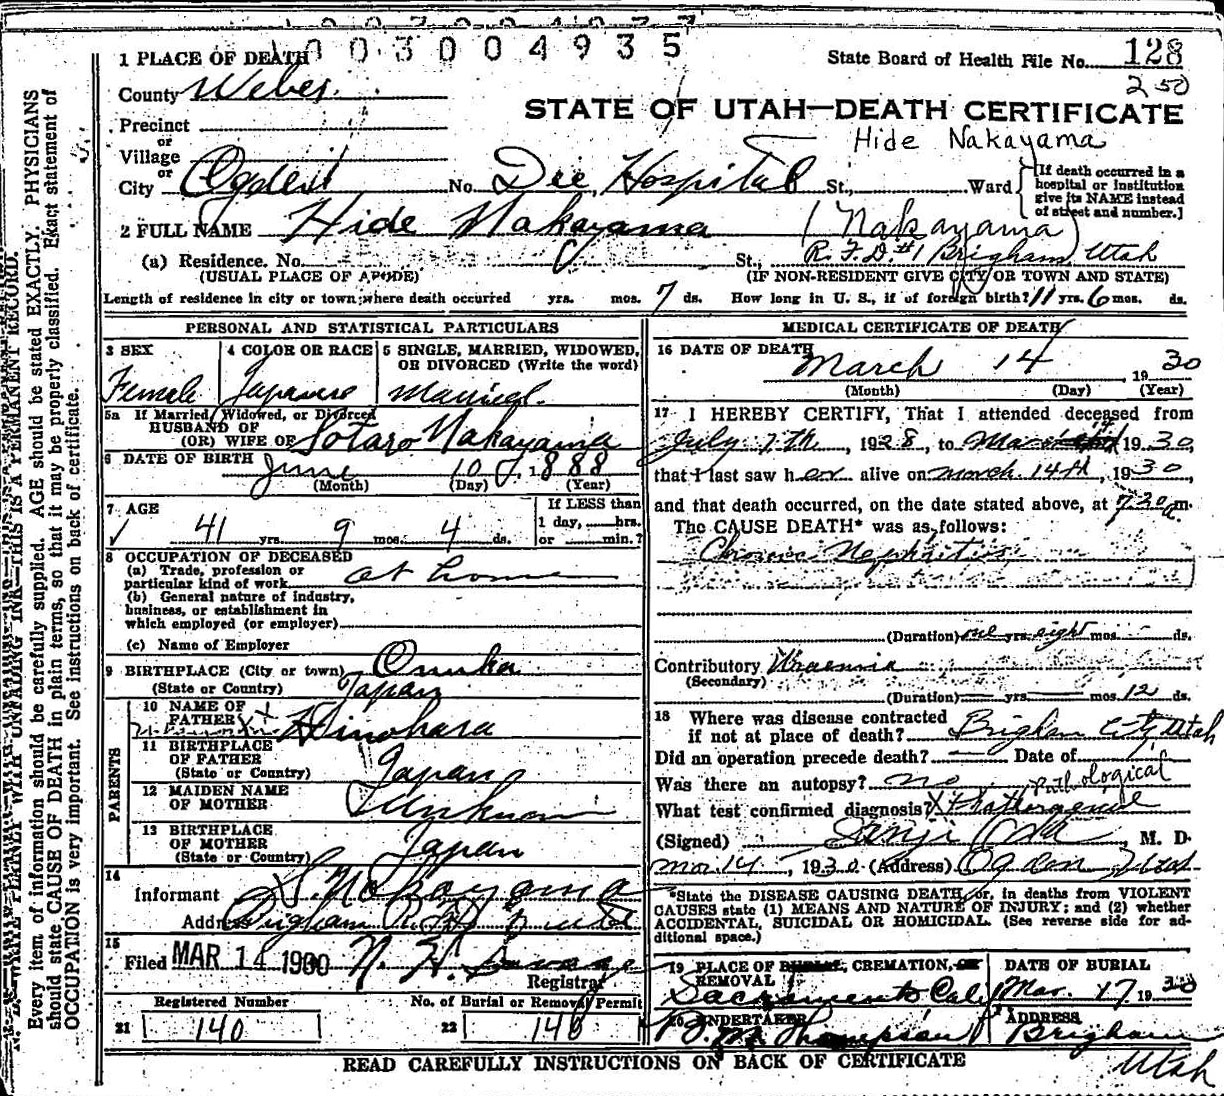 1003004935
1 PLACE OF DEATH
State Board of Health File No. 128
250
County Weber
STATE OF UTAH—DEATH CERTIFICATE
Precinct
or
Village
Hide Nakayama
or
City Ogden No. Dee Hospital St., Ward
[If death occurred in a hospital or institution give its NAME instead of street and number.]
2 FULL NAME Hide Nakayama (Nakayama)
(a) Residence. No. St., R.F.D. #1 Brigham, Utah
(USUAL PLACE OF ABODE) (IF NON-RESIDENT GIVE CITY OR TOWN AND STATE)
Length of residence in city or town where death occurred yrs. mos. 7 ds. How long in U. S., if of foreign birth? 11 yrs. 6 mos. ds.
PERSONAL AND STATISTICAL PARTICULARS
3 SEX
Female
4 COLOR OR RACE
Japanese
5 SINGLE, MARRIED, WIDOWED,
OR DIVORCED (Write the word)
Married.
5a If Married, Widowed, or Divorced
HUSBAND OF
(OR) WIFE OF Sotaro Nakayama
6 DATE OF BIRTH June 10, 1888
(Month) (Day) (Year)
7 AGE
41 yrs. 9 mos. 4 ds.
If LESS than
1 day, hrs.
or min.?
8 OCCUPATION OF DECEASED
(a) Trade, profession or
particular kind of work at home
(b) General nature of industry,
business, or establishment in
which employed (or employer)
(c) Name of Employer
9 BIRTHPLACE (City or town)
(State or Country) Japan
PARENTS
10 NAME OF
FATHER Hinohara
11 BIRTHPLACE
OF FATHER
(State or Country) Japan
12 MAIDEN NAME
OF MOTHER Unknown
13 BIRTHPLACE
OF MOTHER
(State or Country) Japan
14
Informant S. Nakayama
Address Brigham R.F.D. Utah
15
Filed MAR 14 1930 N. H. Savage
Registrar
Registered Number No. of Burial or Removal Permit
21 140 22 140
MEDICAL CERTIFICATE OF DEATH
16 DATE OF DEATH
March 14, 1930
(Month) (Day) (Year)
17 I HEREBY CERTIFY, That I attended deceased from
July 7th, 1928, to March 14 1930,
that I last saw her alive on March 14th, 1930
and that death occurred, on the date stated above, at 7 30 a m.
The CAUSE DEATH* was as follows:
Chronic Nephritis
(Duration) one yrs. eight mos. ds.
Contributory Uraemia
(Secondary)
(Duration) yrs. mos. 12 ds.
18 Where was disease contracted
if not at place of death? Brigham City Utah
Did an operation precede death? — Date of
Was there an autopsy? no
Pathological
What test confirmed diagnosis?
(Signed) M. D.
Mar 14, 1930 (Address) Ogden Utah
*State the DISEASE CAUSING DEATH, or, in deaths from VIOLENT
CAUSES state (1) MEANS AND NATURE OF INJURY; and (2) whether
ACCIDENTAL, SUICIDAL OR HOMICIDAL. (See reverse side for ad-
ditional space.)
19 PLACE OF BURIAL, CREMATION, OR
REMOVAL
Sacramento Calif
DATE OF BURIAL
Mar. 17 1930
20 UNDERTAKER
Thompson
ADDRESS
Brigham
Utah
READ CAREFULLY INSTRUCTIONS ON BACK OF CERTIFICATE
N. B.—WRITE PLAINLY WITH UNFADING INK—THIS IS A PERMANENT RECORD.
Every item of information should be carefully supplied. AGE should be stated EXACTLY. PHYSICIANS
should state CAUSE OF DEATH in plain terms, so that it may be properly classified. Exact statement of
OCCUPATION is very important. See instructions on back of certificate.